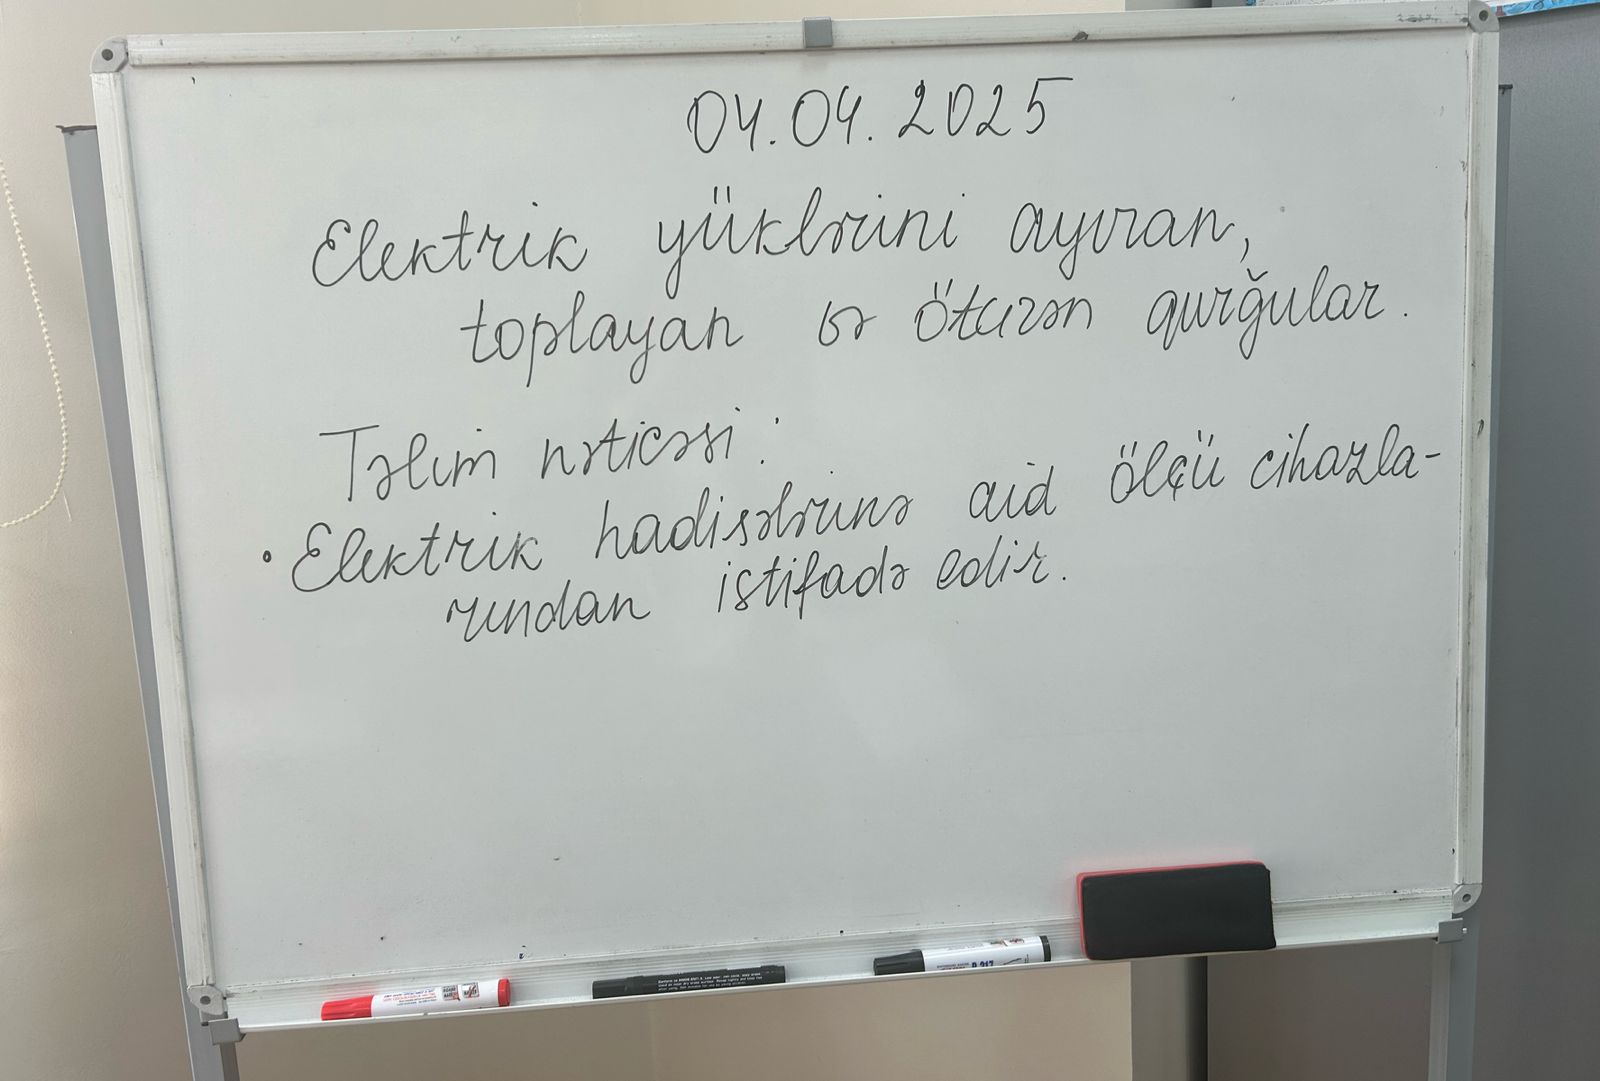 04.04.2025
Elektrik yüklərini ayıran,
toplayan və ötürən qurğular.
Təlim nəticəsi:
• Elektrik hadisələrinə aid ölçü cihazla-
rından istifadə edir.